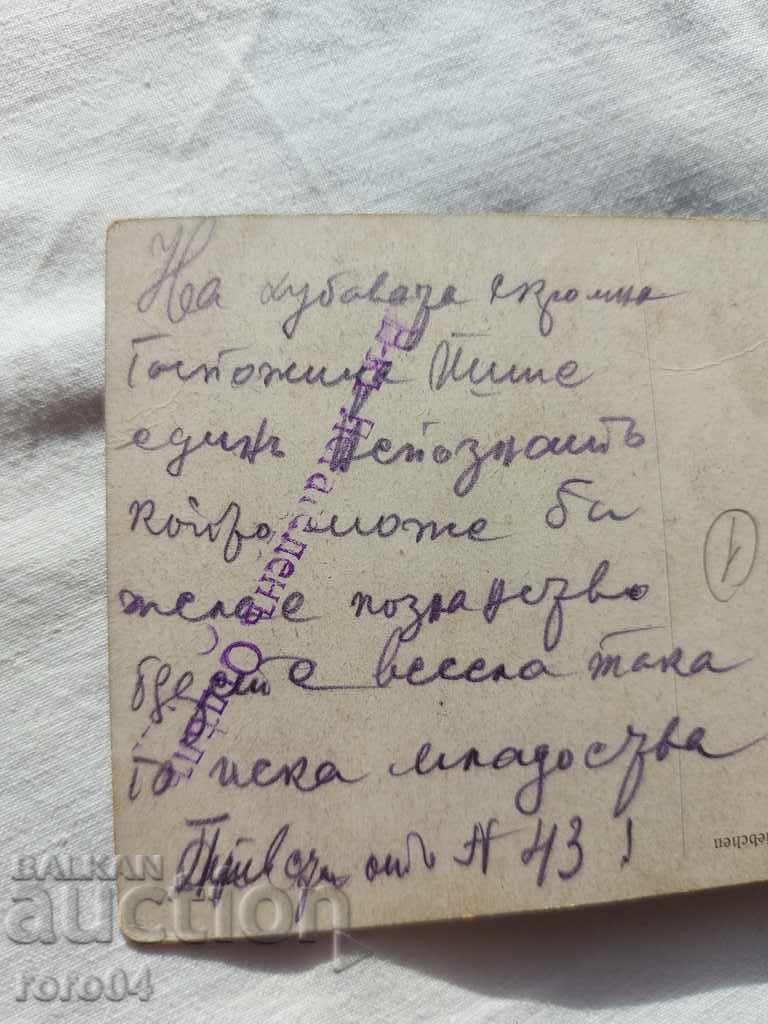 На хубаваta скромна
Госпожица Пише
единъ непознатъ
който може би
желае познанство
бдете весела така
го иска младостьта
Привет отъ N 43!
1
В-къ Деп Оритель
iebchen
BALKAN
auction
roro04